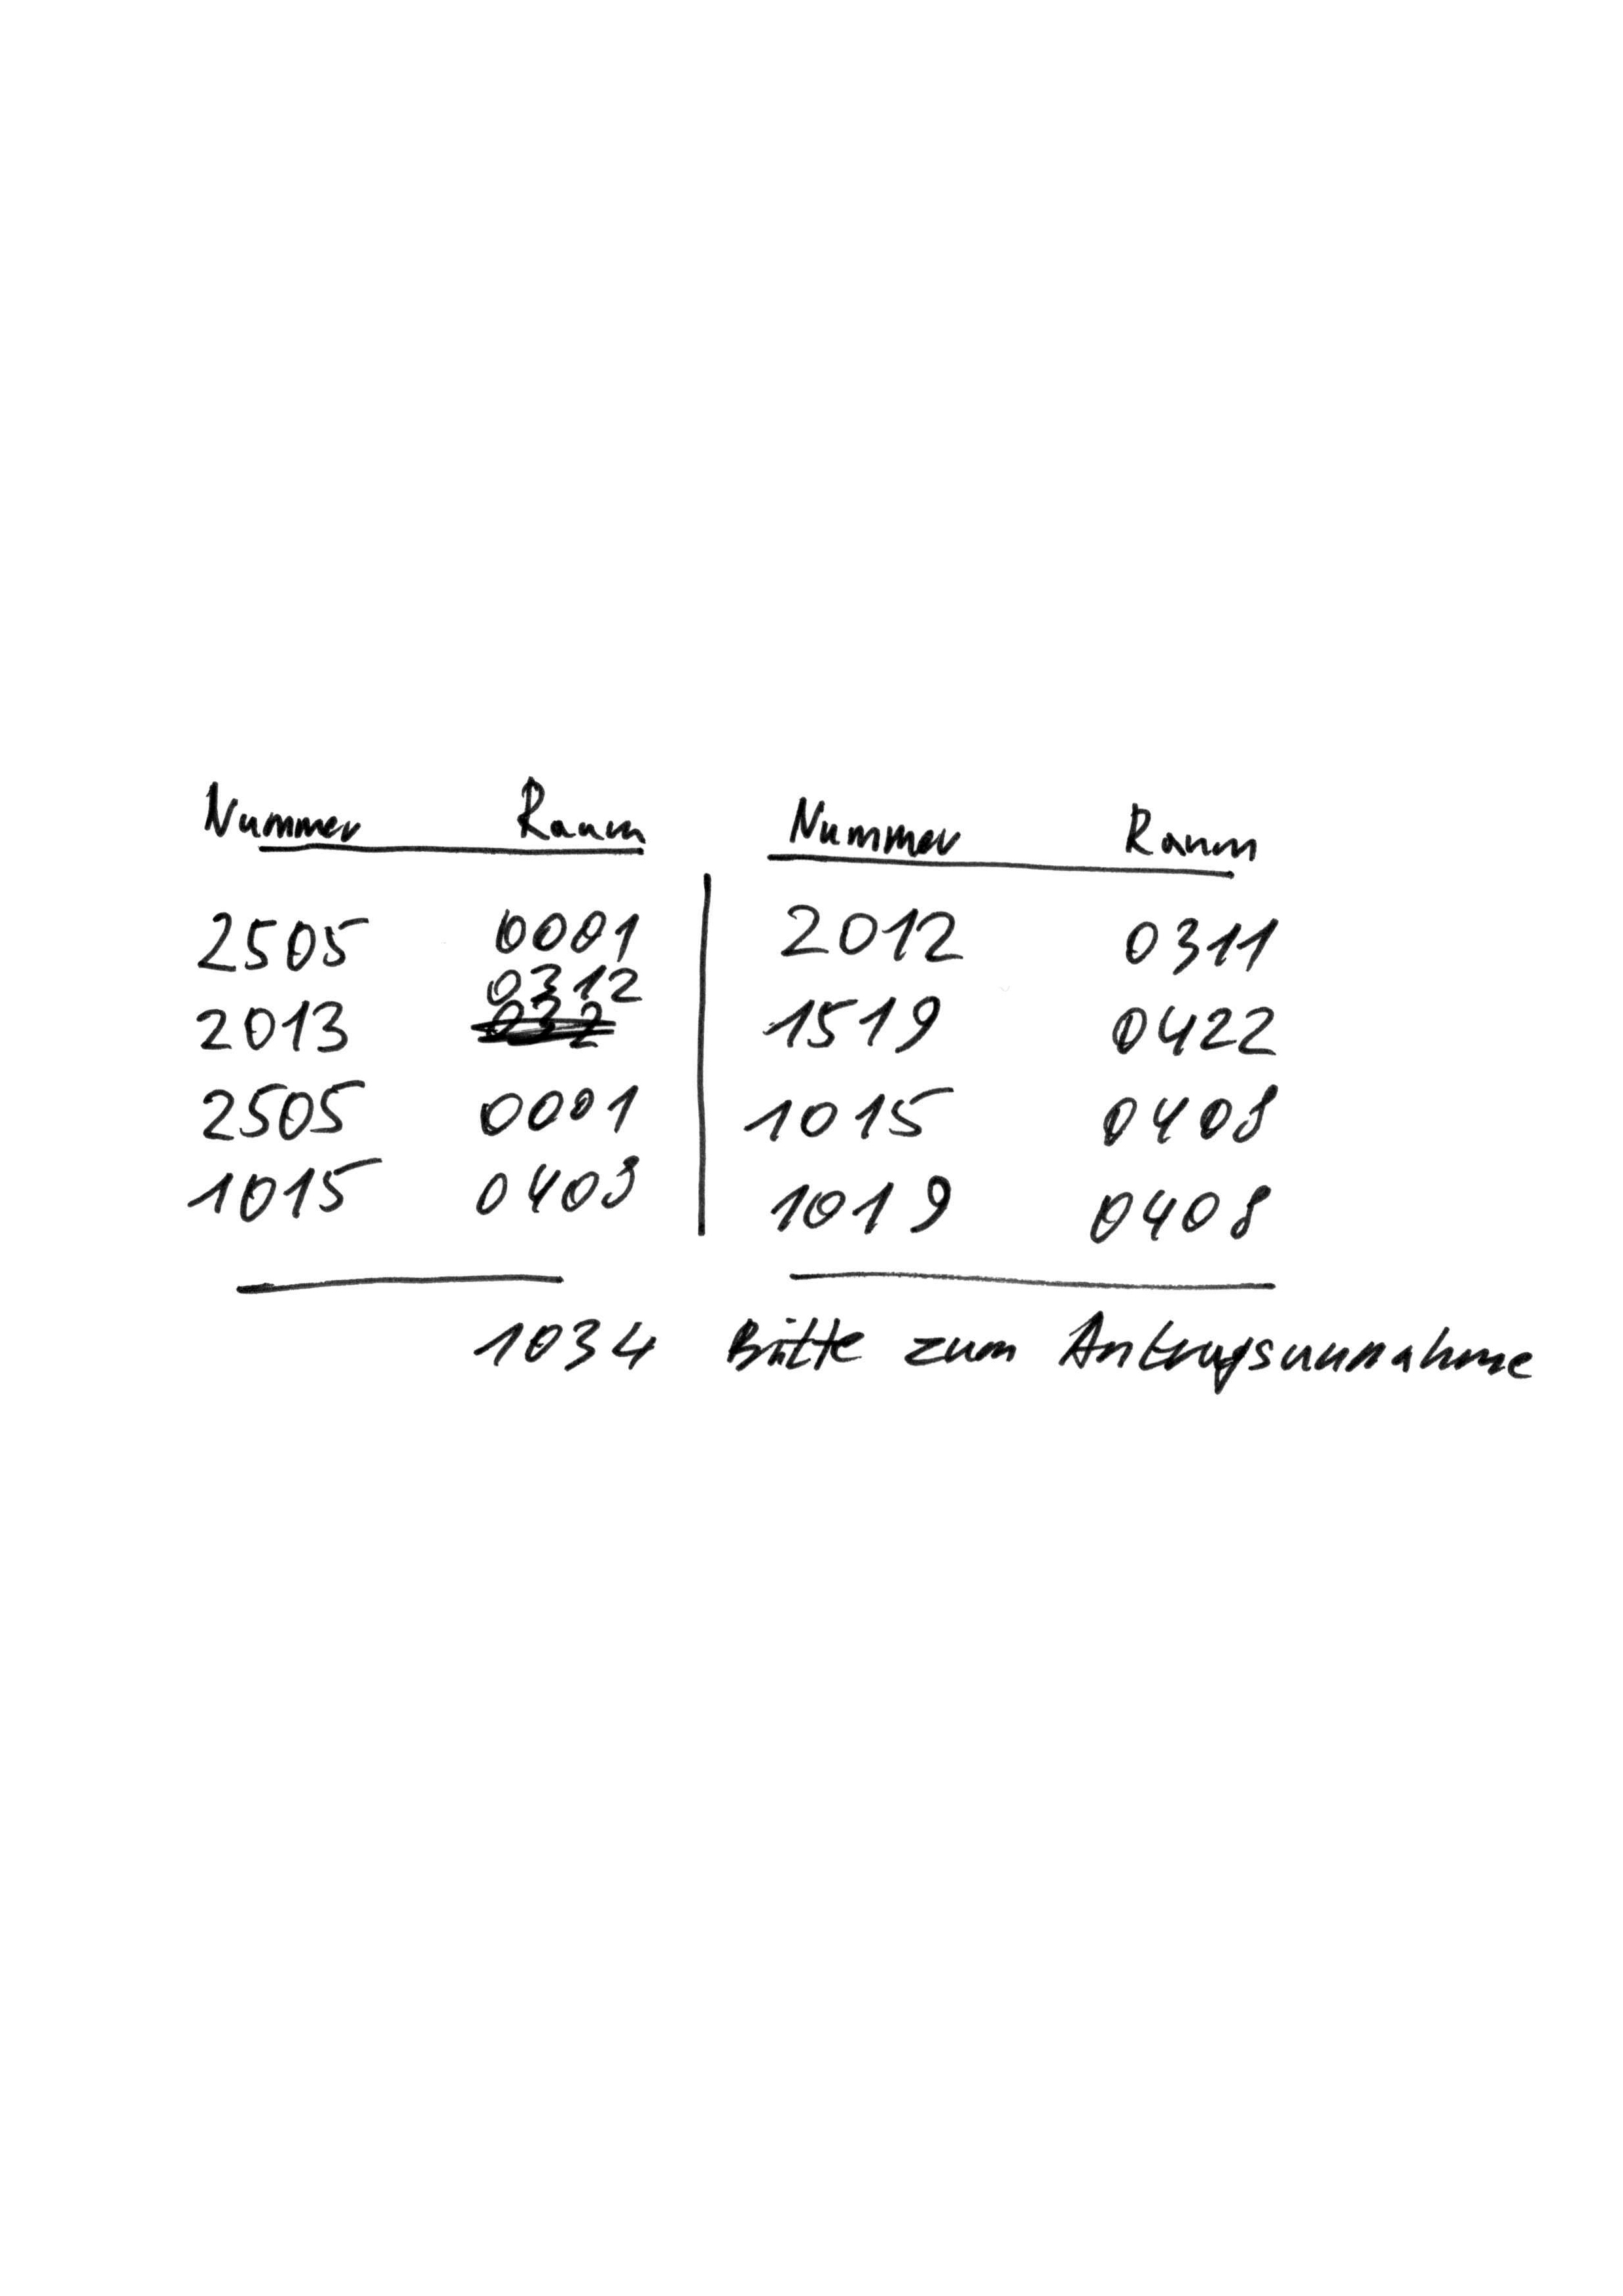 Nummer Raum Nummer Raum
2505 0001 2012 0311
0312
2013 1519 0422
2505 0001 1015 0408
1015 0403 1019 0408
1034 Bitte zum Antragsannahme